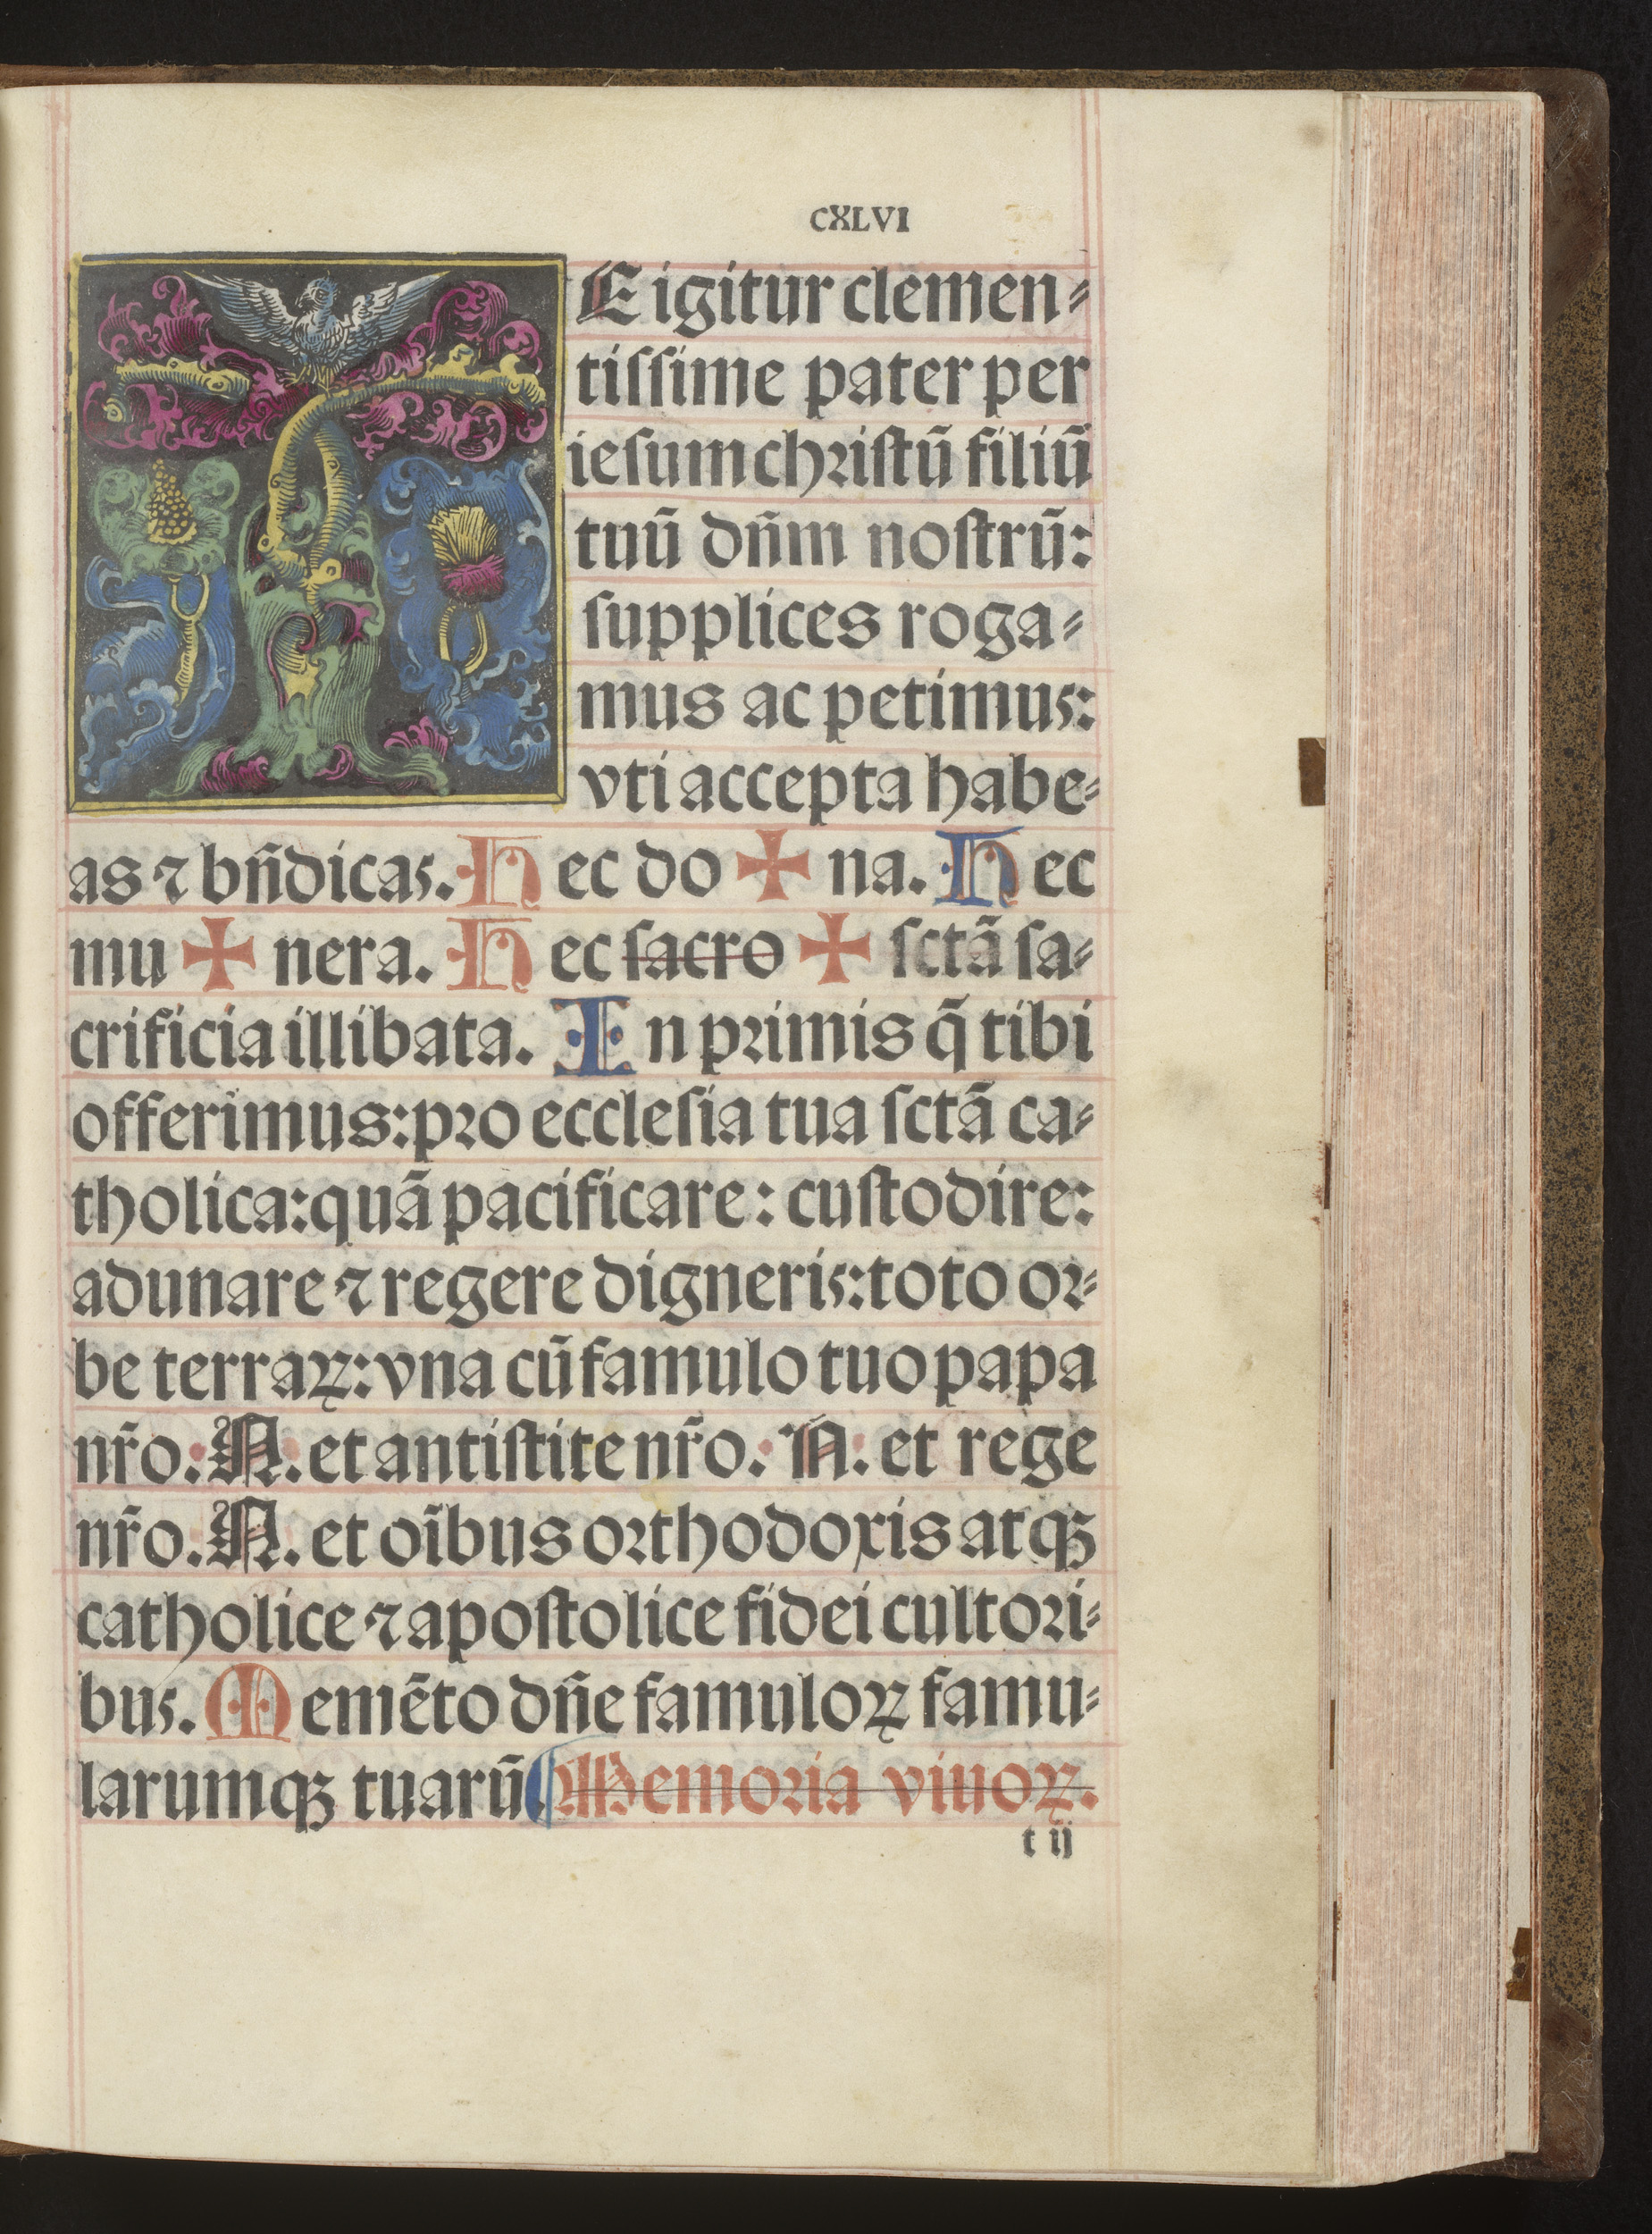 CXLVI
TE igitur clemen⸗
tiſſime pater per
ieſum chꝛiſtū filiū
tuū dn̄m noſtrū:
ſupplices roga⸗
mus ac petimus:
vti accepta habe⸗
as ⁊ bn̄dicas. Hec do ✠ na. Hec
mu ✠ nera. Hec ſacro ✠ ſctā ſa⸗
crificia illibata. In pꝛimis q̄ tibi
offerimus: pꝛo eccleſia tua ſctā ca⸗
tholica: quā pacificare: cuſtodire:
adunare ⁊ regere digneris: toto oꝛ⸗
be terraꝝ: vna cū famulo tuo papa
nr̄o: N. et antiſtite nr̄o: N: et rege
nr̄o. N. et oı̄bus oꝛthodoxis atqꝫ
catholice ⁊ apoſtolice fidei cultoꝛi⸗
bus. Memēto dn̄e famuloꝝ famu⸗
larumqꝫ tuarū. ¶Memoꝛia viuoꝝ.
t ij